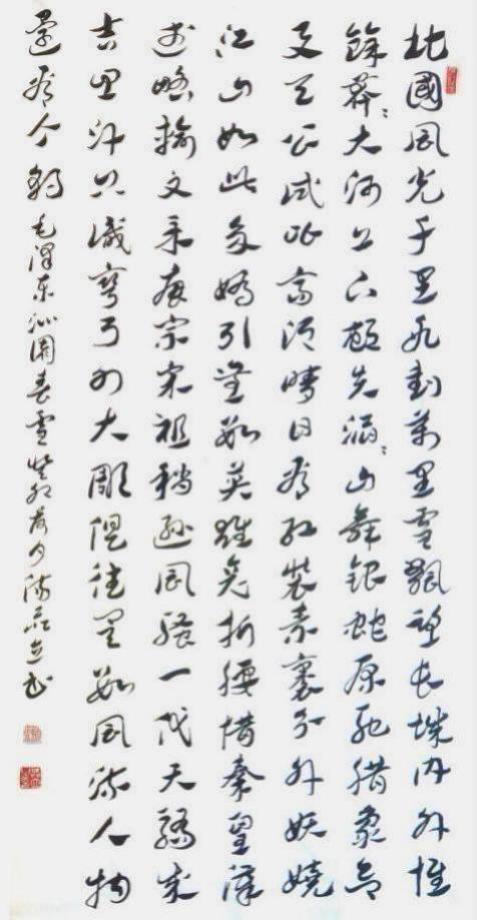 北國风光千里冰封萬里雪飘望长城内外惟
餘莽〻大河上下顿失滔〻山舞银蛇原驰腊象欲
与天公试比高须晴日看红装素裹分外妖娆
江山如此多娇引無數英雄竞折腰惜秦皇漢
武略输文采唐宗宋祖稍逊风骚一代天骄成
吉思汗只識弯弓射大雕俱往矣數风流人物
還看今朝 毛泽东沁園春雪